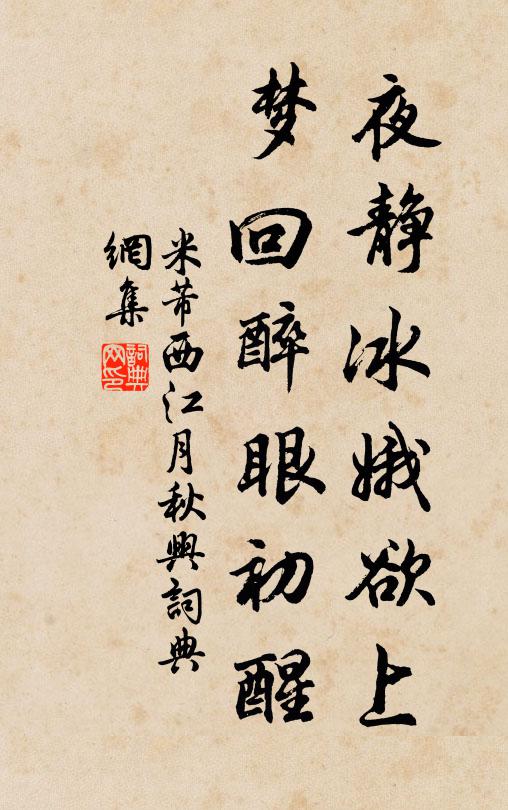 夜静冰娥欲上
梦回醉眼初醒
米芾西江月秋興詞典
網集
詞典網印